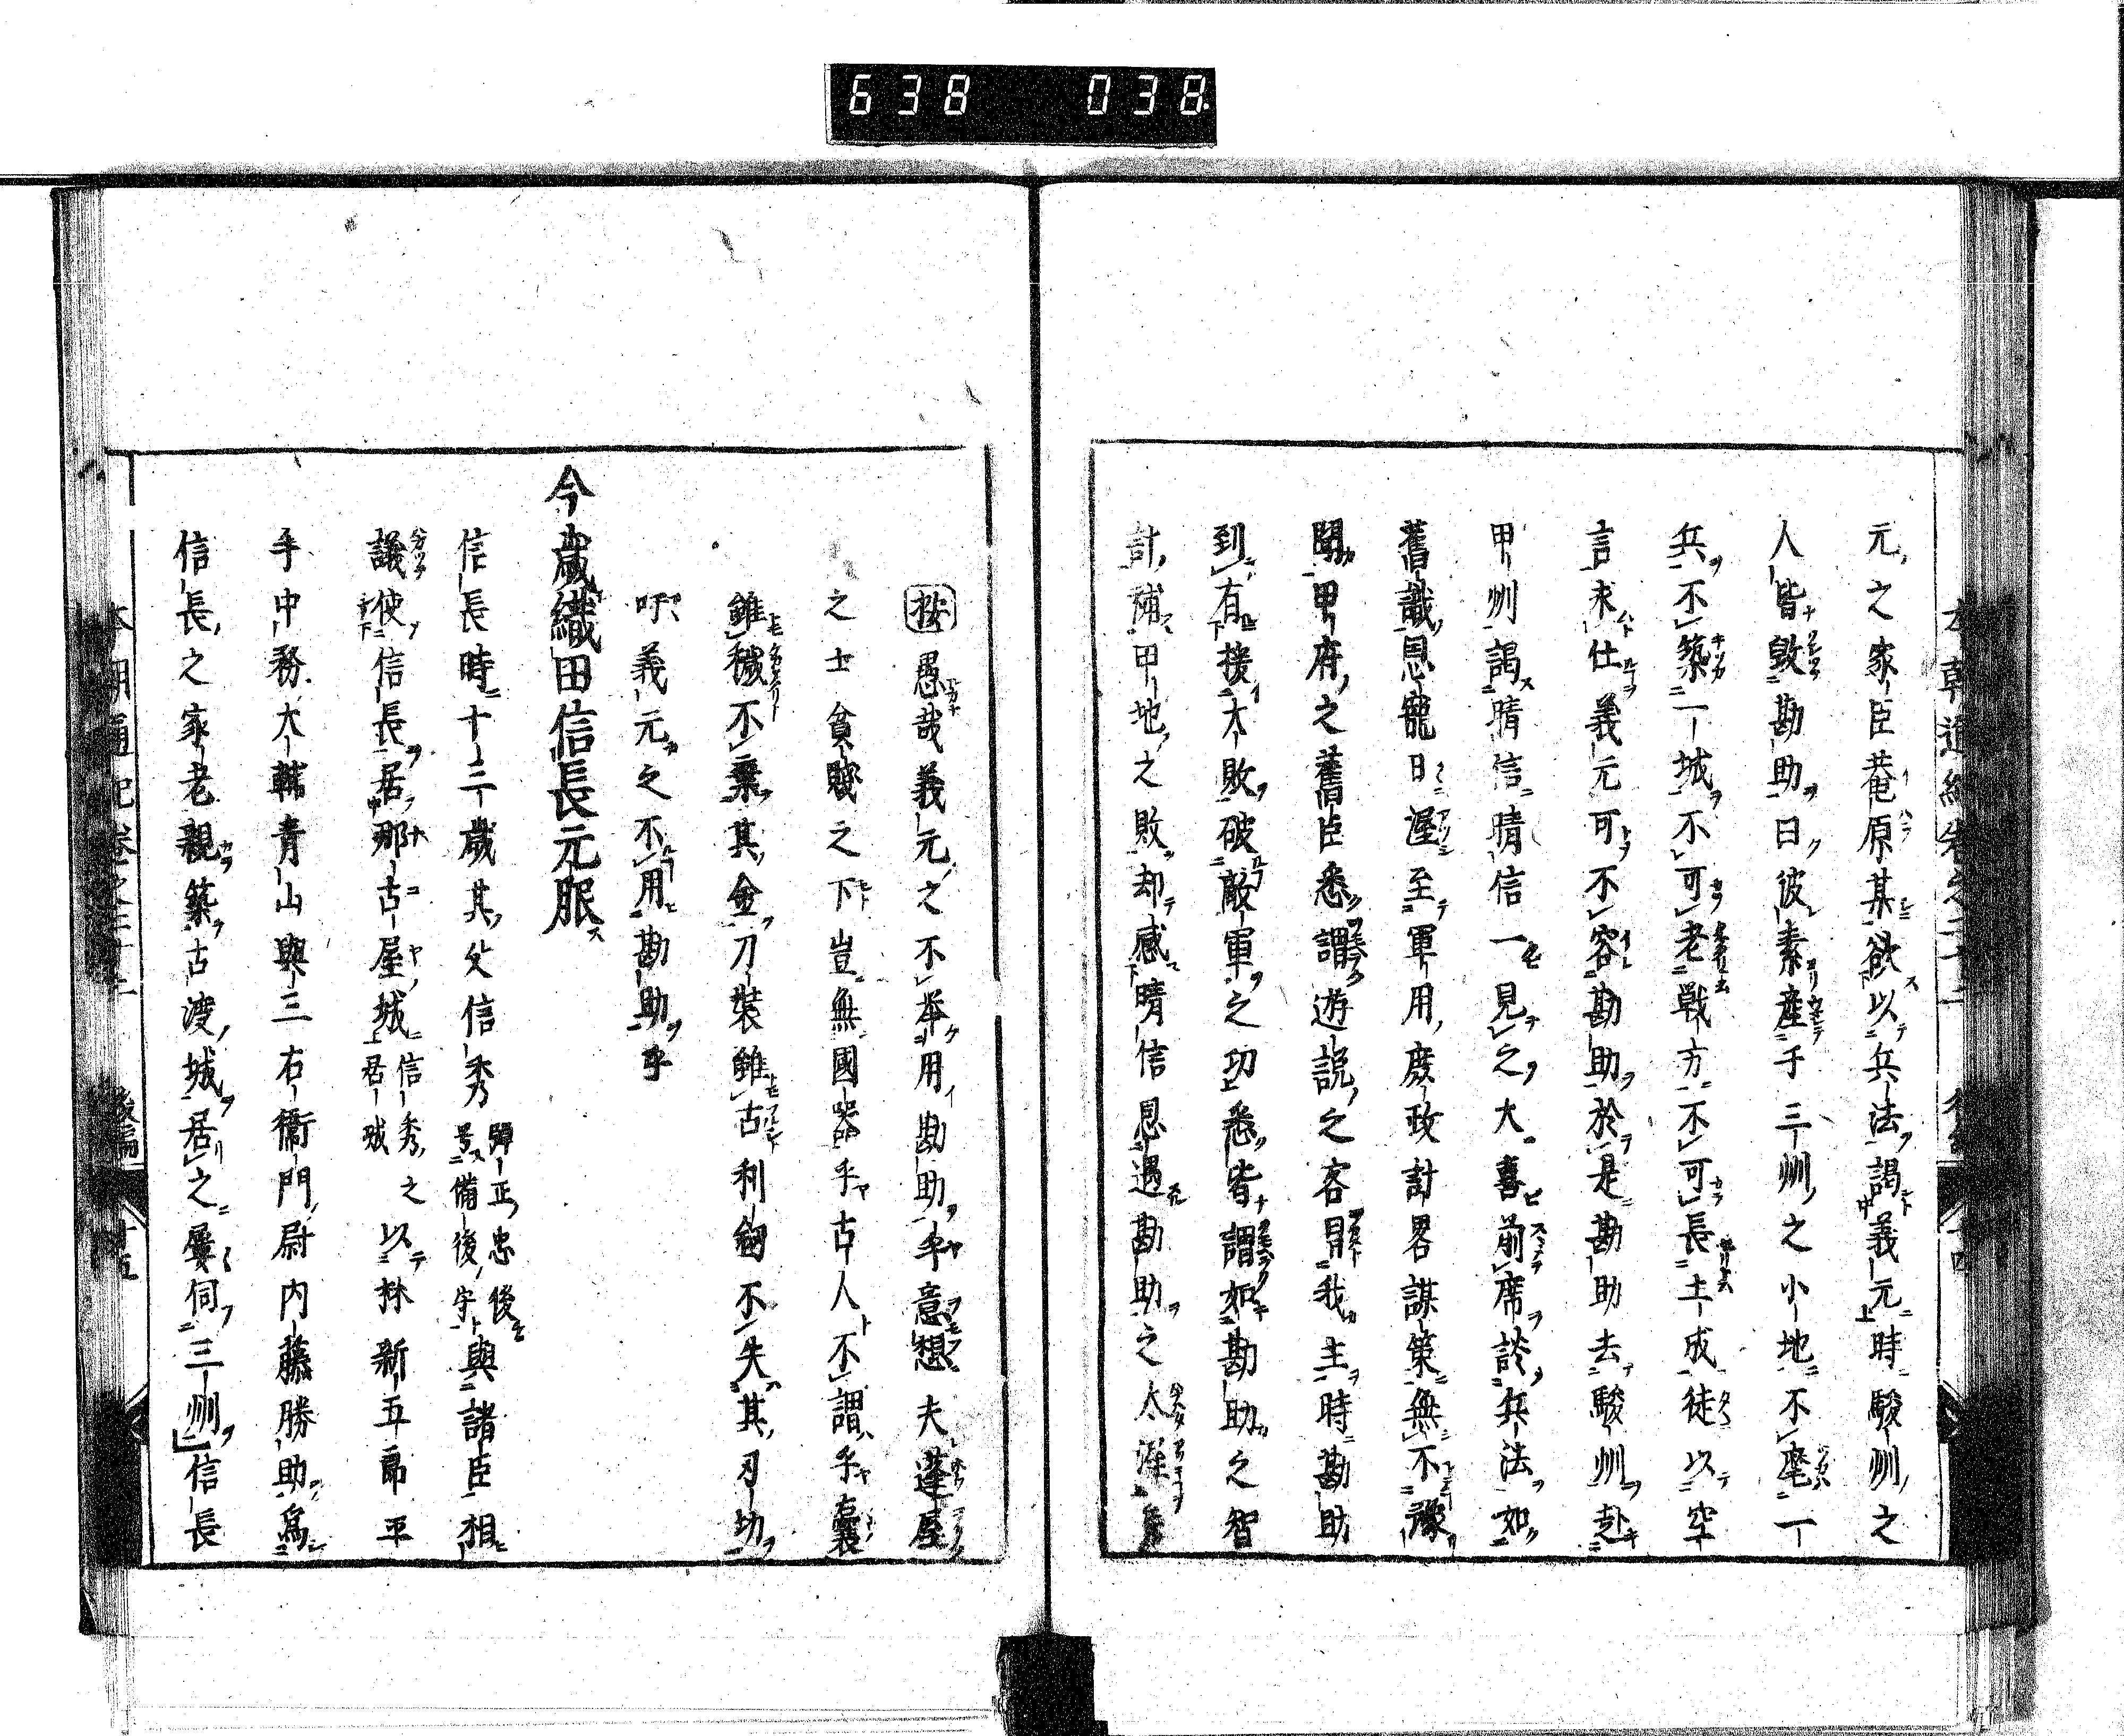 638 038
元之家臣菴原某欲以兵法謁義元時駿州之
人皆毀勘助曰彼素産于三州之小地不麾一
兵不築一城不可老戦方不可長士成徒以空
言求仕義元可不容勘助於是勘助去駿州赴
甲州謁晴信晴信一見之大喜前席談兵法如
舊識恩寵日渥至軍用庶政計畧謀策無不豫
聞甲府之舊臣悉謂遊説之客冒我主時勘助
到有援大敗破敵軍之功悉皆謂如勘助之智
計補甲地之敗却感晴信恩遇勘助之太渥
按愚哉義元之不挙用勘助乎意想夫蓬屋
之士貧賤之下豈無國器乎古人不謂乎囊
雖穢不棄其金刀装雖古利劔不失其刃功
吁義元之不用勘助乎
今歳織田信長元服
信長時十三歳其父信秀弾正忠後号備後守與諸臣相
議使信長居那古屋城信秀之居城以林新五郎平
手中務大輔青山與三右衞門尉内藤勝助為
信長之家老親築古渡城居之屢伺三州信長
本朝通紀巻之三十二 後編 十五